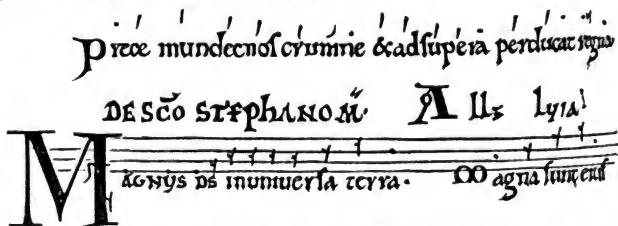 mundet nos crimine & ad supera perducat regna
DE SC̄O STEPHANO M̄. All lyia
MAGNUS DS̄ in universa terra. Magna sunt eni